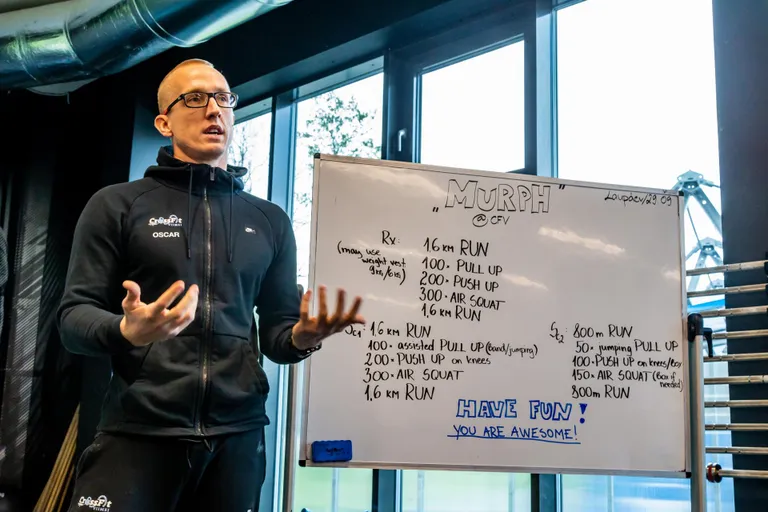 CrossFit
OSCAR
CrossFit
"MURPH"
@ CFV
Laupäev/29.09
Rx: 1.6 KM RUN
(may use 100 · PULL UP
weight vest 200 · PUSH UP
9kg/6kg) 300 · AIR SQUAT
1,6 KM RUN
Sc1 1.6 KM RUN
100 · assisted PULL UP (band/jumping)
200 · PUSH UP on knees
300 · AIR SQUAT
1,6 KM RUN
Sc2: 800m RUN
50 · jumping PULL UP
100 · PUSH UP on knees/box
150 · AIR SQUAT (box if
needed)
800m RUN
HAVE FUN!
YOU ARE AWESOME!